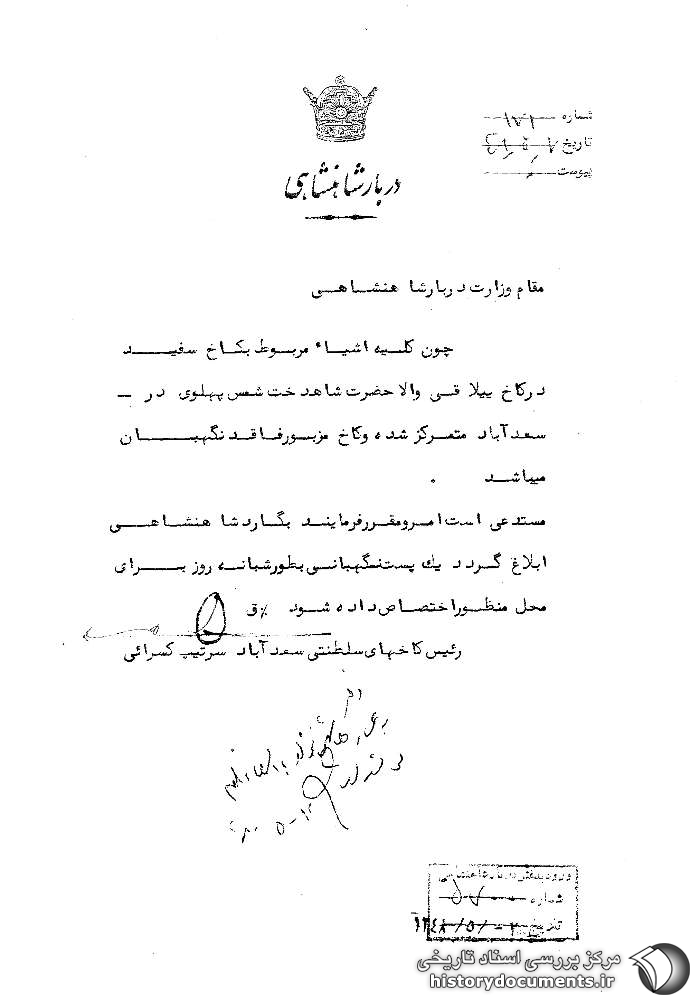 شماره ۱۷۱
تاریخ
پیوست
دربار شاهنشاهی
مقام وزارت دربار شاهنشاهی
چون کلیه اشیاء مربوط بکاخ سفید
در کاخ ییلاقی والاحضرت شاهدخت شمس پهلوی در –
سعدآباد متمرکز شده و کاخ مزبور فاقد نگهبان
میباشد .
مستدعی است امر و مقرر فرمایند بگارد شاهنشاهی
ابلاغ گردد یک پست نگهبانی بطور شبانه روز برای
محل منظور اختصاص داده شود ٪ق
رئیس کاخهای سلطنتی سعدآباد سرتیپ کسرائی
شماره
تاریخ
مرکز بررسی اسناد تاریخی
historydocuments.ir